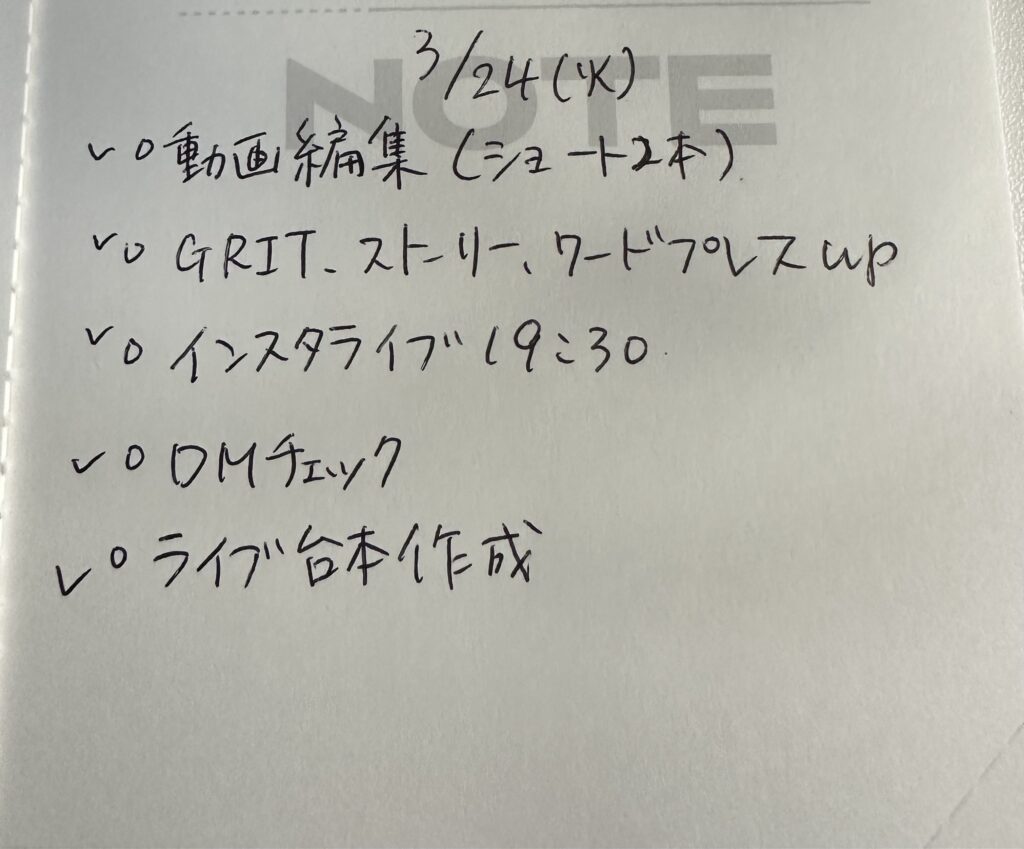 NOTE
3/24(火)
✓○動画編集(ショート2本)
✓○GRIT、ストーリー、ワードプレスup
✓○インスタライブ19:30
✓○DMチェック
✓○ライブ台本作成